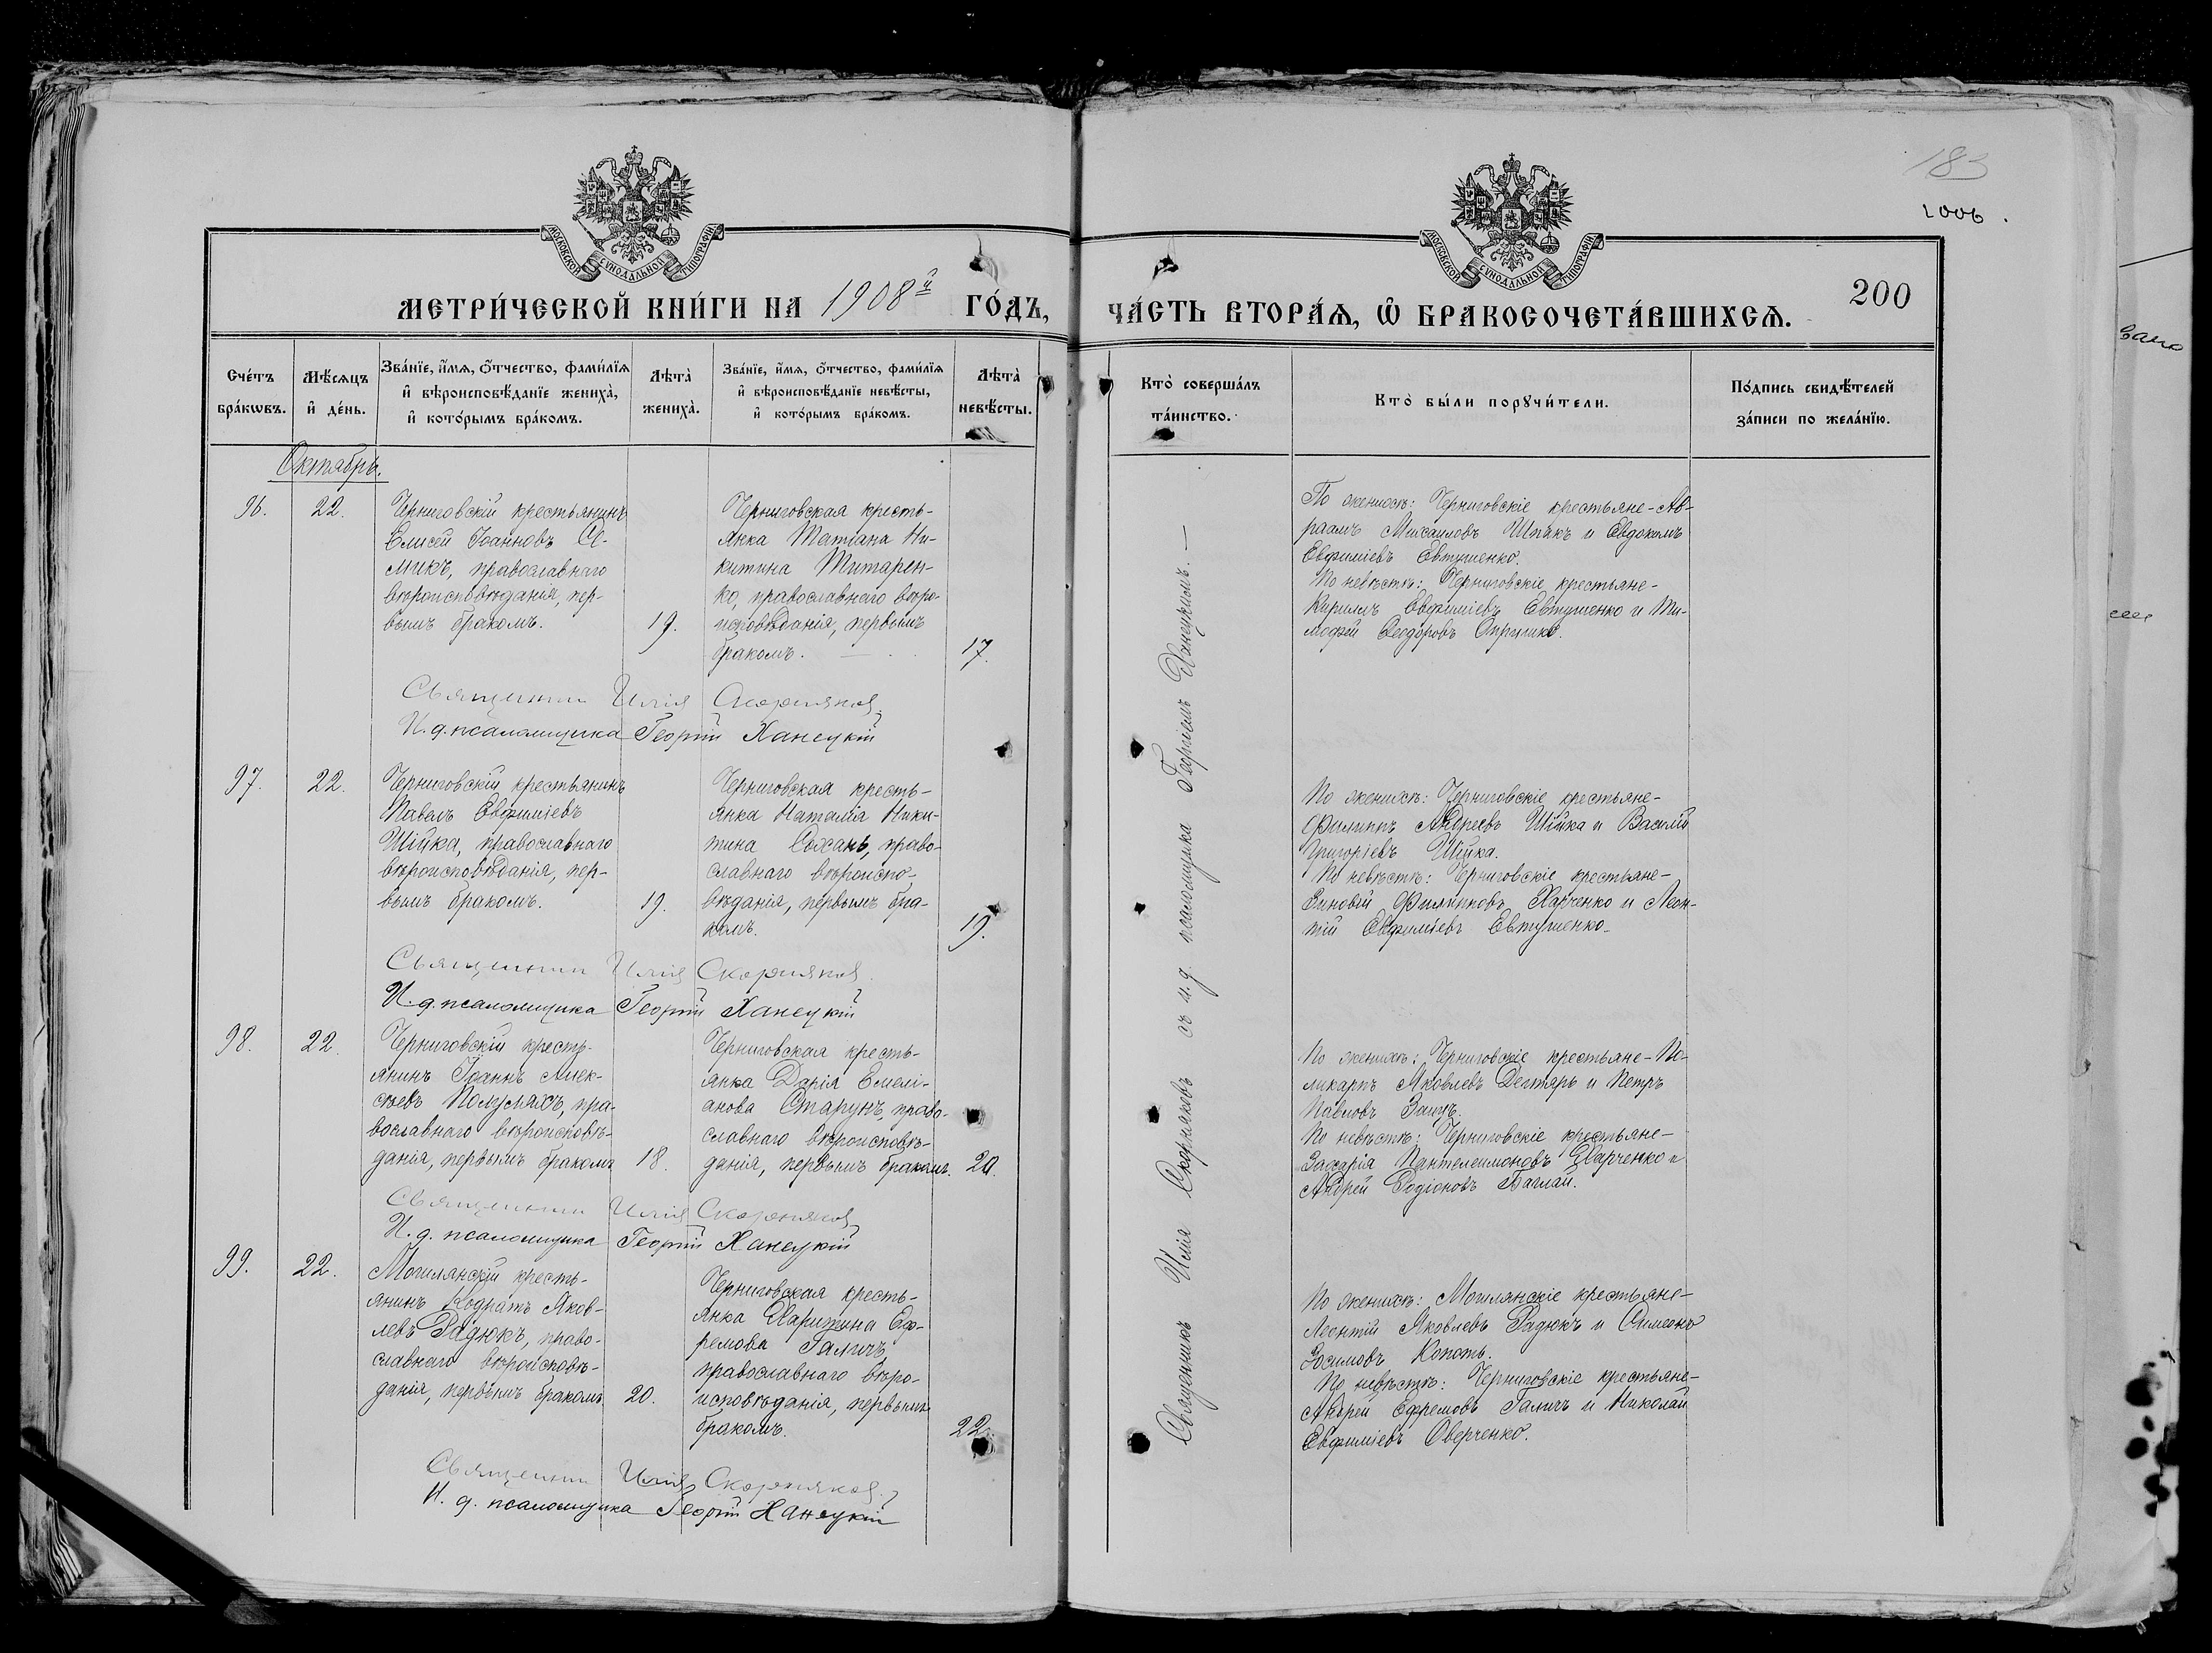 183
200б.
МОСКОВСКОЙ СѴНОДАЛЬНОЙ ТИПОГРАФІИ
МОСКОВСКОЙ СѴНОДАЛЬНОЙ ТИПОГРАФІИ
МЕТРИ́ЧЕСКОЙ КНИ́ГИ НА 1908й ГО́ДЪ,
ЧА́СТЬ ВТОРА́Ѧ, Ѡ҆ БРАКОСОЧЕТА́ВШИХСѦ.
200
Сче́тъ
бра́кѡвъ.
Мѣ́сѧцъ
и҆ де́нь.
Зва́нїе, и҆́мѧ, ѻ҆́тчество, фами́лїѧ
и҆ вѣроисповѣ́данїе жениха̀,
и҆ кото́рымъ бра́комъ.
Лѣта̀
жениха̀.
Зва́нїе, и҆́мѧ, ѻ҆́тчество, фами́лїѧ
и҆ вѣроисповѣ́данїе невѣ́сты,
и҆ кото́рымъ бра́комъ.
Лѣта̀
невѣ́сты.
Кто̀ соверша́лъ
та́инство.
Кто̀ бы́ли порꙋчи́тели.
По́дпись свидѣ́телей
за́писи по жела́нїю.
Октябрь.
96.
22.
Черниговскій крестьянинъ
Елисей Іоанновъ Се-
микъ, православнаго
вѣроисповѣданія, пер-
вымъ бракомъ.
19.
Черниговская кресть-
янка Татіана Ни-
китина Титарен-
ко, православнаго вѣро-
исповѣданія, первымъ
бракомъ.
17.
По женихѣ: Черниговскіе крестьяне-Ав-
раамъ Михаиловъ Шпакъ и Евдокимъ
Евфиміевъ Евтушенко.
По невѣстѣ: Черниговскіе крестьяне-
Кириллъ Евфиміевъ Евтушенко и Ти-
мофей Ѳеодоровъ
Священникъ Илія Скорняковъ
И. д. псаломщика Георгій Ханецкій
97.
22.
Черниговскій крестьянинъ
Павелъ Евфиміевъ
Шійка, православнаго
вѣроисповѣданія, пер-
вымъ бракомъ.
19.
Черниговская кресть-
янка Наталія Ники-
тина Сохань, право-
славнаго вѣроиспо-
вѣданія, первымъ бра-
комъ.
19.
По женихѣ: Черниговскіе крестьяне-
Филиппъ Андреевъ Шійка и Василій
Григоріевъ Шійка.
По невѣстѣ: Черниговскіе крестьяне-
Зиновій Филипповъ Харченко и Леон-
тій Евфиміевъ Евтушенко.
Священникъ Илія Скорняковъ
И. д. псаломщика Георгій Ханецкій
98.
22.
Черниговскій кресть-
янинъ Іоаннъ Алек-
сѣевъ Полусмакъ, пра-
вославнаго вѣроисповѣ-
данія, первымъ бракомъ
18.
Черниговская кресть-
янка Дарія Емелі-
анова Старунъ, право-
славнаго вѣроисповѣ-
данія, первымъ бракомъ.
20.
По женихѣ: Черниговскіе крестьяне-По-
ликарпъ Яковлевъ Дегтярь и Петръ
Павловъ Заяцъ.
По невѣстѣ: Черниговскіе крестьяне-
Захарія Пантелеимоновъ Харченко и
Андрей Родіоновъ Баглай.
Священникъ Илія Скорняковъ
И. д. псаломщика Георгій Ханецкій
99.
22.
Могилянскій кресть-
янинъ Кодратъ Яков-
левъ Радюкъ, право-
славнаго вѣроисповѣ-
данія, первымъ бракомъ
20.
Черниговская кресть-
янка Харитина Еф-
ремова Галичъ,
православнаго вѣро-
исповѣданія, первымъ
бракомъ.
22.
По женихѣ: Могилянскіе крестьяне-
Леонтій Яковлевъ Радюкъ и Симеонъ
Зосимовъ Копоть.
По невѣстѣ: Черниговскіе крестьяне-
Андрей Ефремовъ Галичъ и Николай
Евфиміевъ Оверченко.
Священникъ Илія Скорняковъ
И. д. псаломщика Георгій Ханецкій
Священникъ Илія Скорняковъ съ и. д. псаломщика Георгіемъ Ханецкимъ. —